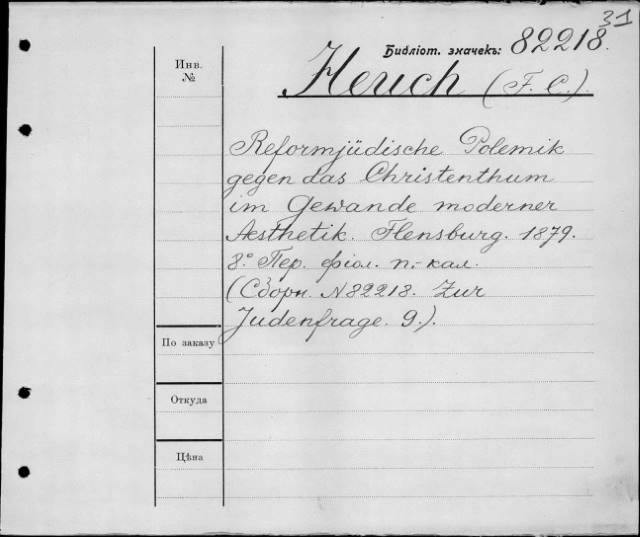 31
Библіот. значекъ: 82218.
Инв.
№
Heuch (F. C.).
Reformjüdische Polemik
gegen das Christenthum
im Gewande moderner
Aesthetik. Flensburg. 1879.
8.° Пер. фіол. п.-кал.
(Сборн. N 82218. Zur
Judenfrage. 9.).
По заказу
Откуда
Цѣна